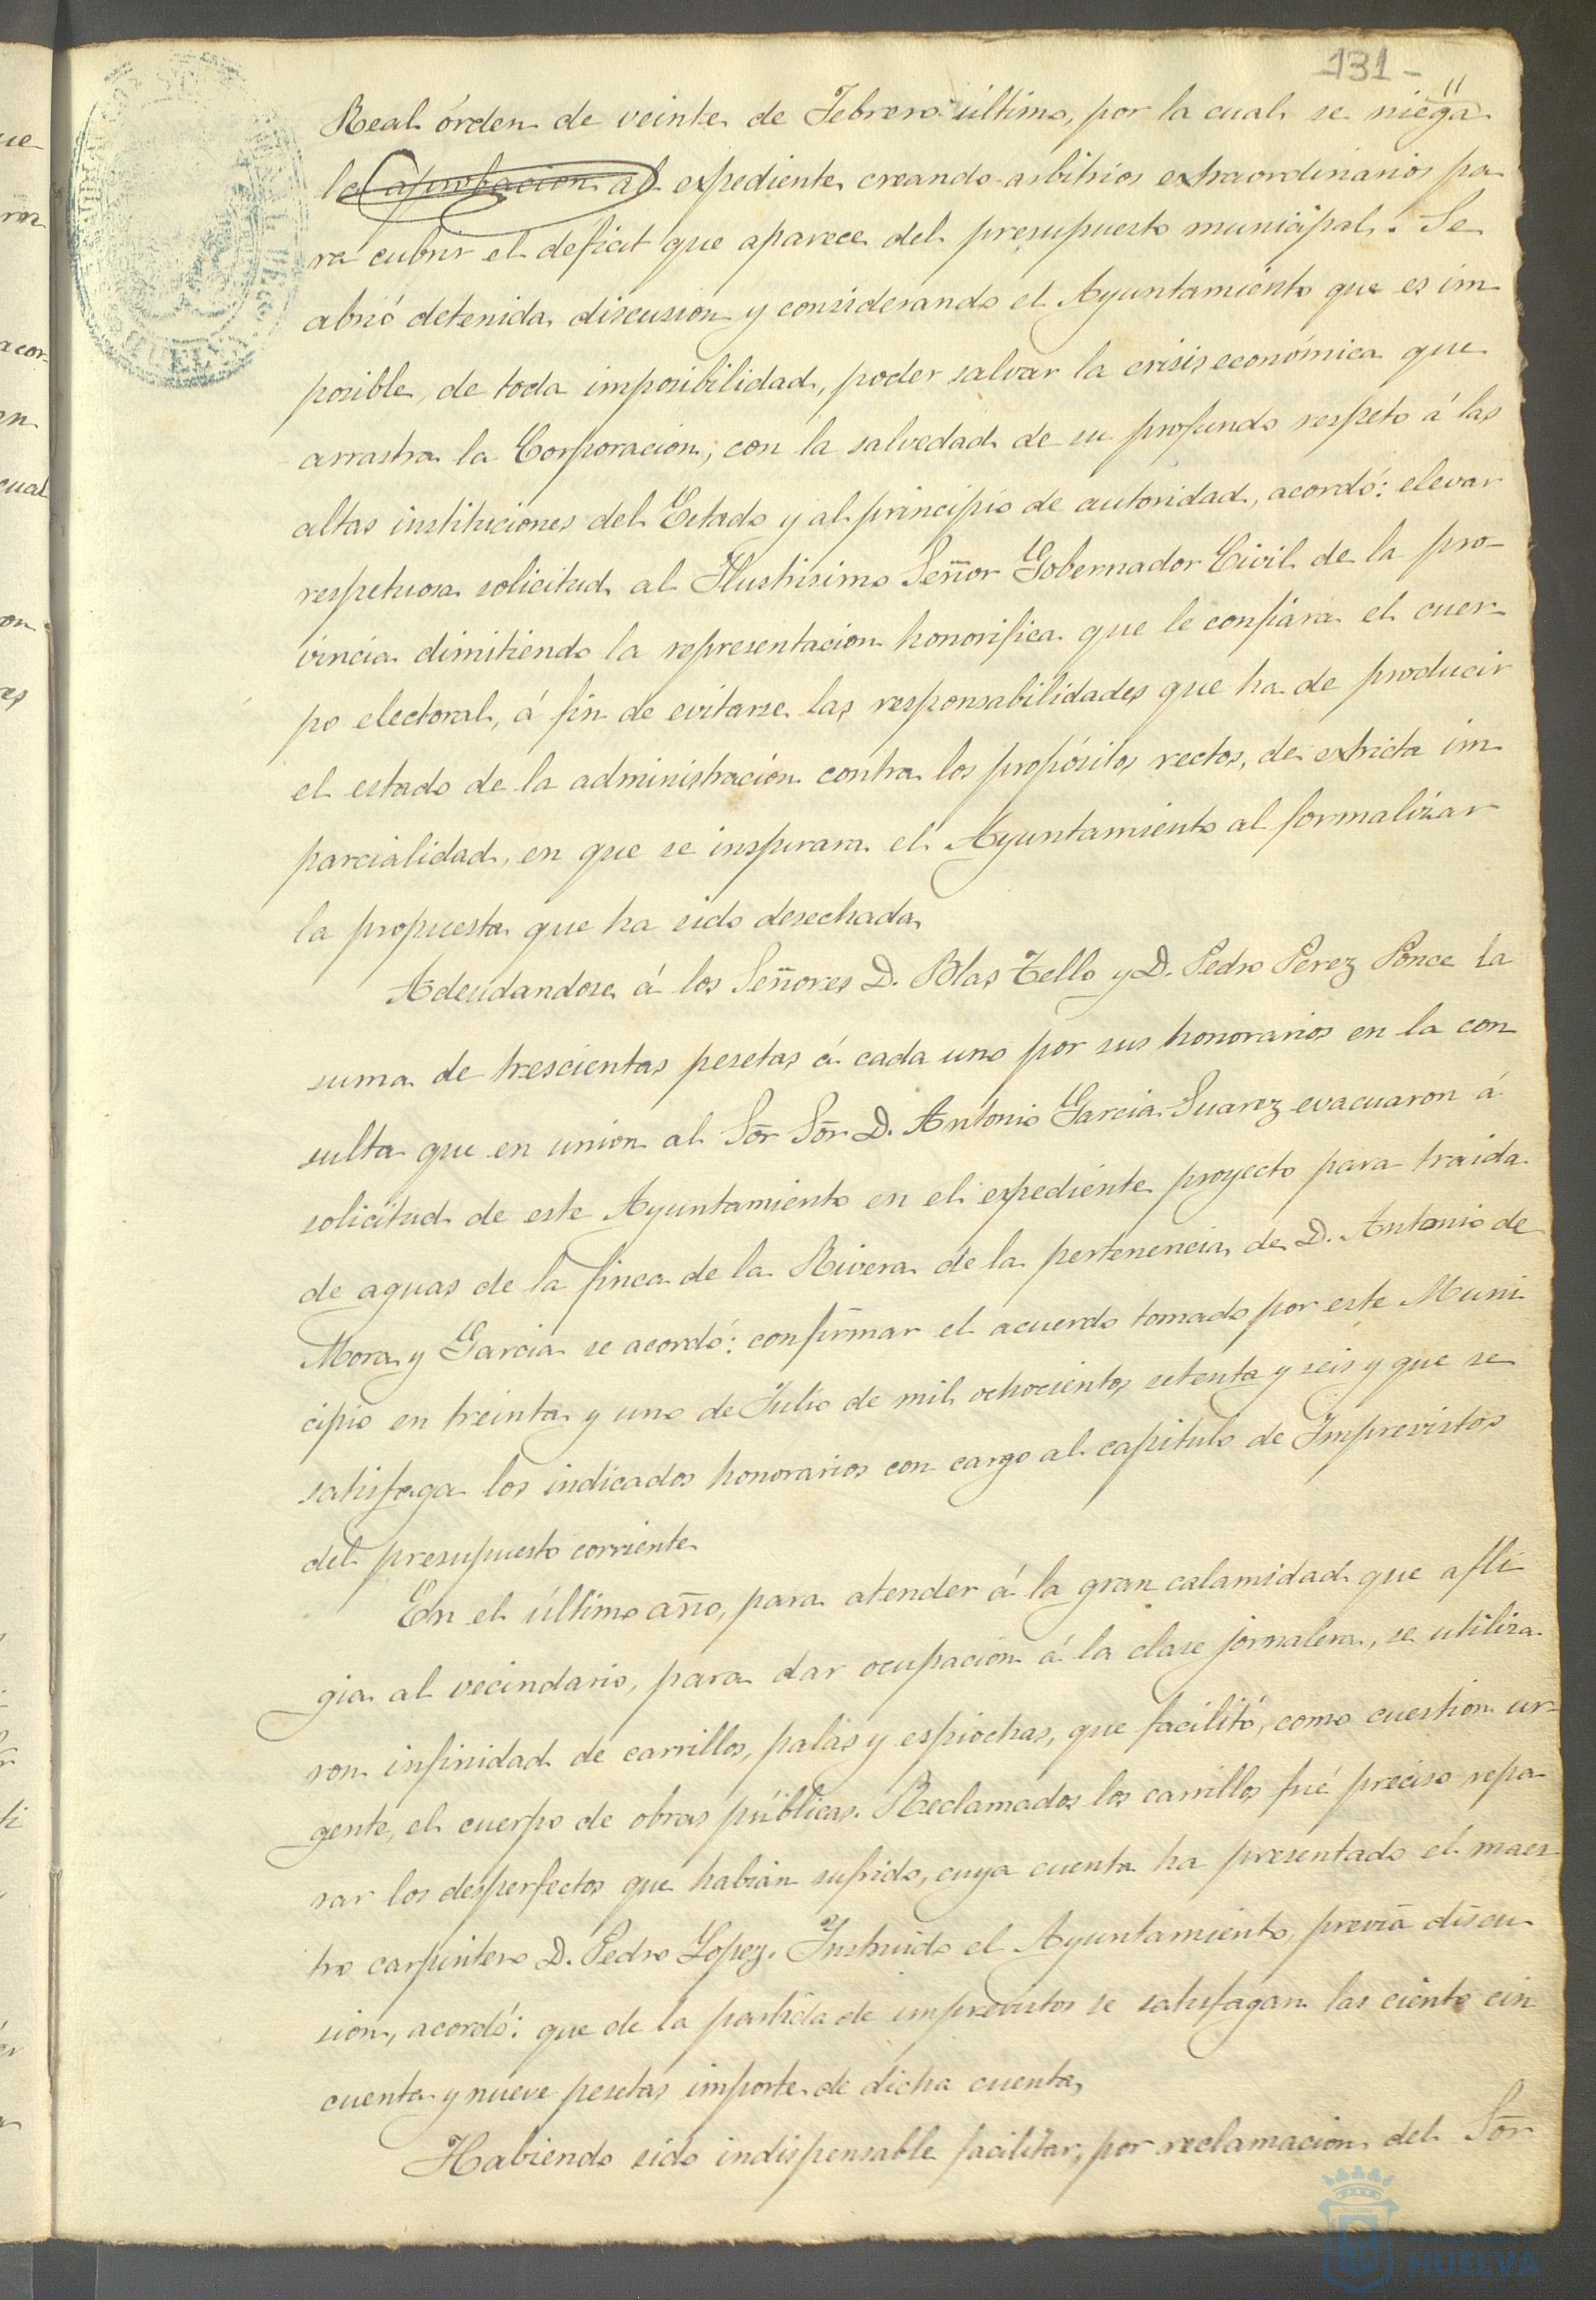 131-
Real órden de veinte de Febrero último, por la cual se niega
la aprobacion al expediente creando arbitrios extraordinarios pa
ra cubrir el déficit que aparece del presupuesto municipal. Se
abrió detenida discusion y considerando el Ayuntamiento que es im
posible, de toda imposibilidad, poder salvar la crisis económica que
arrastra la Corporacion; con la salvedad de su profundo respeto á las
altas instituciones del Estado y al principio de autoridad, acordó: elevar
respetuosa solicitud al Ilustrisimo Señor Gobernador Civil de la pro-
vincia dimitiendo la representacion honorifica que le confiára el cuer-
po electoral, á fin de evitarse las responsabilidades que ha de producir
el estado de la administracion contra los propósitos rectos, de extricta im
parcialidad, en que se inspirara el Ayuntamiento al formalizar
la propuesta que ha sido desechada
Adeudandose á los Señores D. Blas Tello y D. Pedro Perez Ponce la
suma de trescientas pesetas á cada uno por sus honorarios en la con
sulta que en union al Sõr Sõr D. Antonio Garcia Suarez evacuaron á
solicitud de este Ayuntamiento en el expediente proyecto para traida
de aguas de la finca de la Rivera de la pertenencia de D. Antonio de
Mora y Garcia se acordó: confirmar el acuerdo tomado por este Muni
cipio en treinta y uno de Julio de mil ochocientos setenta y seis y que se
satisfaga los indicados honorarios con cargo al capitulo de Imprevistos
del presupuesto corriente
En el último año, para atender á la gran calamidad que afli
gia al vecindario, para dar ocupacion á la clase jornalera, se utiliza
ron infinidad de carrillos, palas y espiochas, que facilitó, como cuestion ur-
gente, el cuerpo de obras públicas. Reclamados los carrillos fué preciso repa
rar los desperfectos que habian sufrido, cuya cuenta ha presentado el maes
tro carpintero D. Pedro Lopez. Instruido el Ayuntamiento, previa discu
sion, acordó: que de la partida de imprevistos se satisfagan las ciento cin
cuenta y nueve pesetas importe de dicha cuenta
Habiendo sido indispensable facilitar, por reclamacion del Sõr
HUELVA